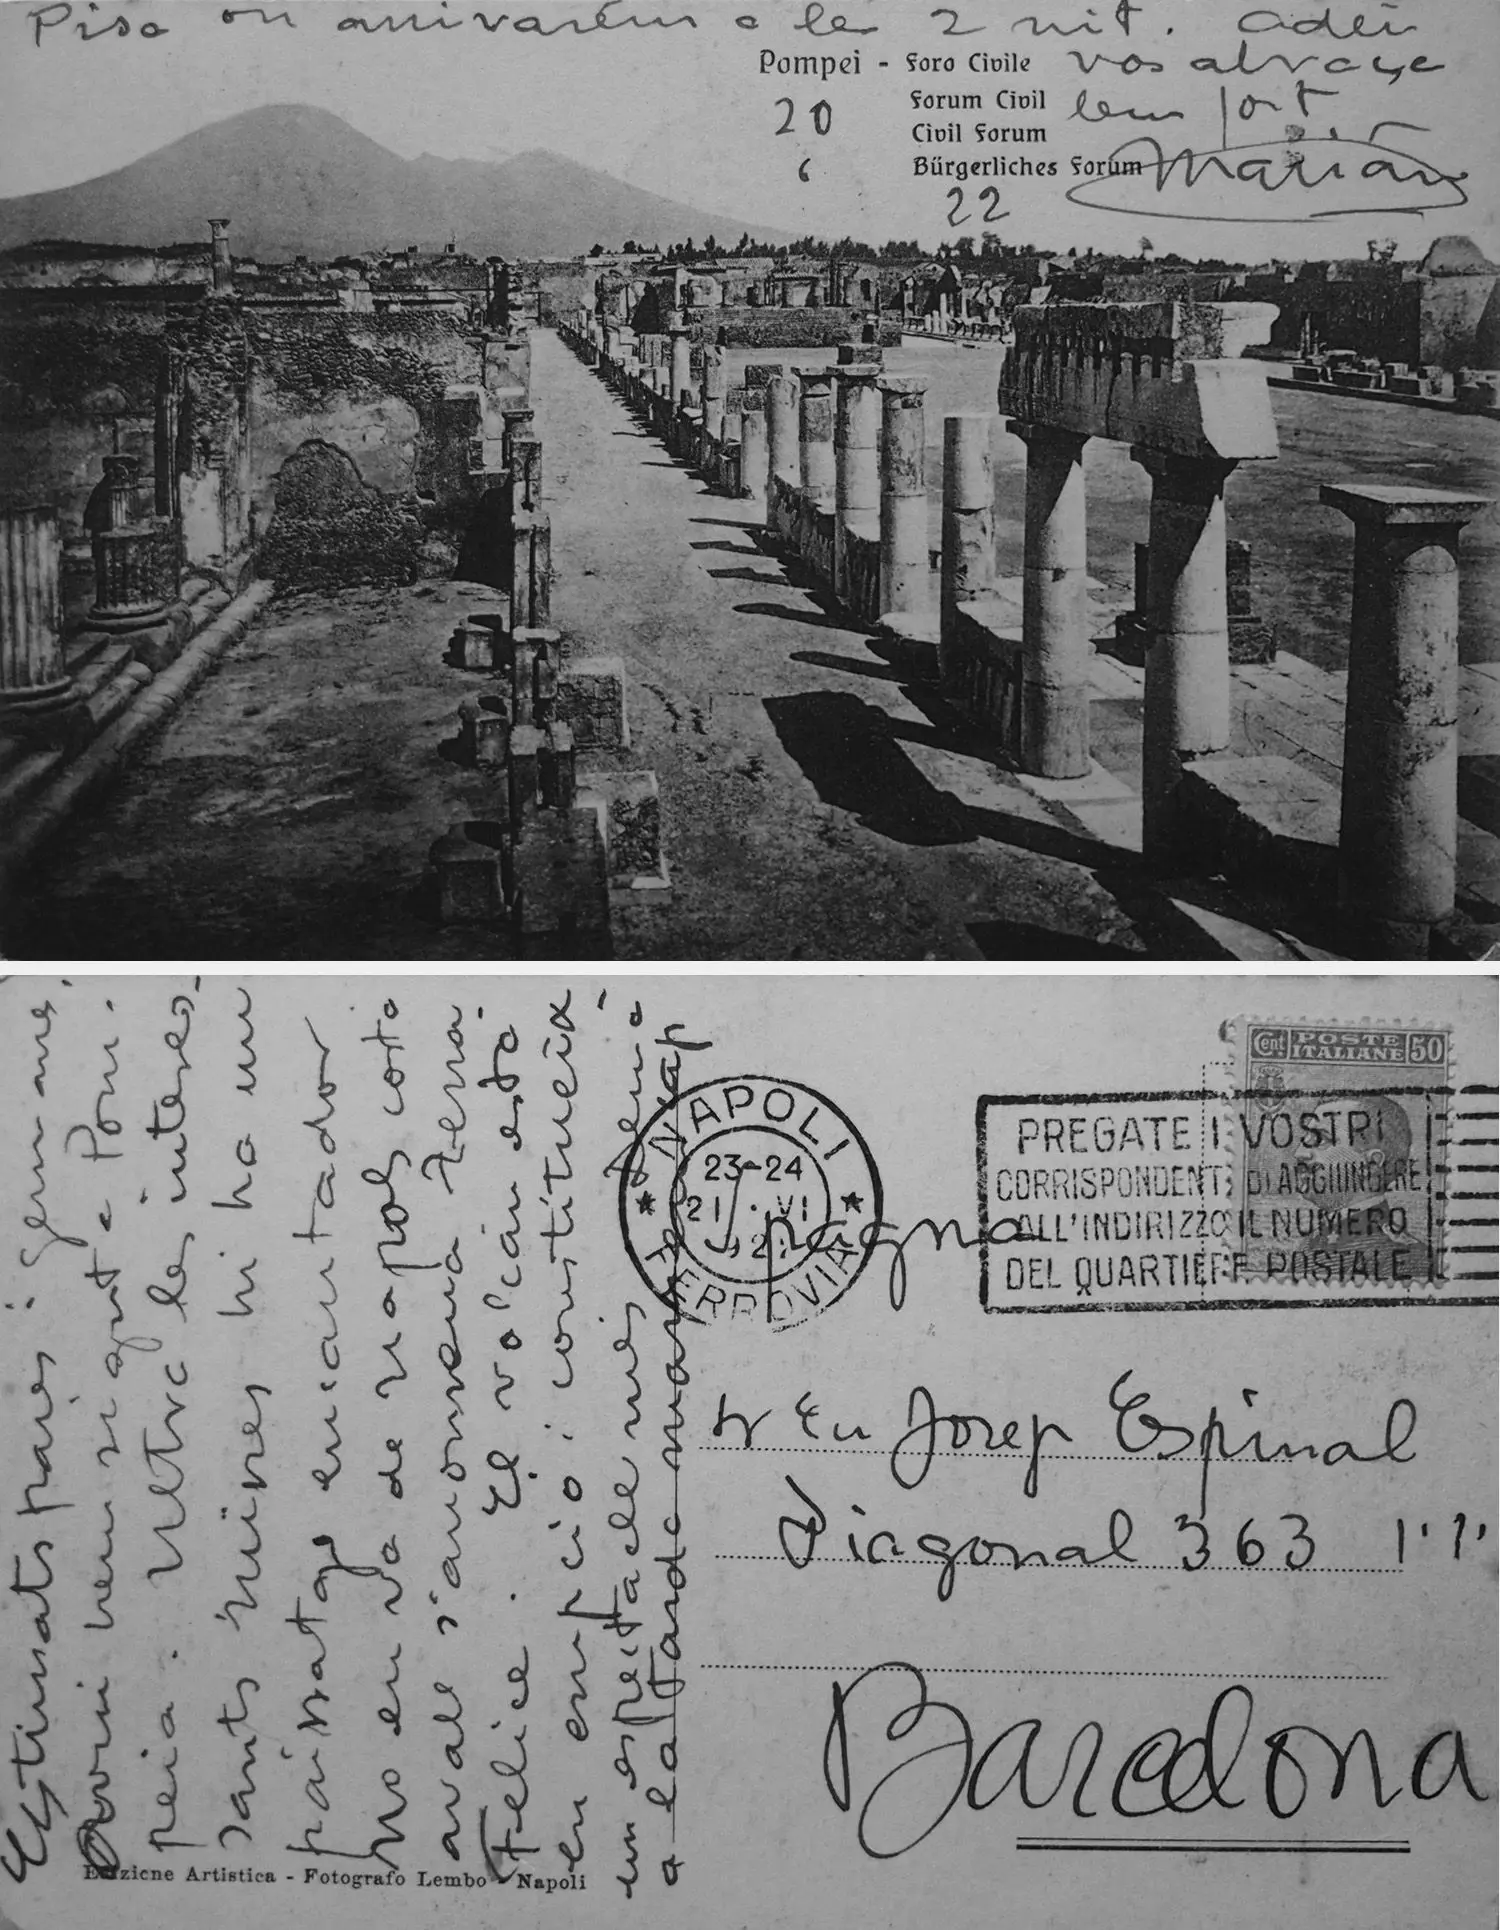 Pisa on arrivarém a les 2 nit. Adéu
Pompei - Foro Civile vos abraça
Forum Civil ben fort
Civil Forum
Bürgerliches Forum Marian
20
6
22
Estimats pares i germans:
Avui hem sigut a Pom-
peia. Ultra les interes-
sants ruines hi ha un
paisatge encantador
No en va de Napols cap
avall s'anomena Terra
Felice. El volcán està
en erupció i constitueix
un espectacle més. Demà
a la tarda marxem cap
NAPOLI
23-24
21 · VI
FERROVIA
Cent. POSTE ITALIANE 50
PREGATE I VOSTRI
CORRISPONDENTI DI AGGIUNGERE
ALL'INDIRIZZO IL NUMERO
DEL QUARTIERE POSTALE
Spagna
Sr En Josep Espinal
Diagonal 363 1er 1a
Barcelona
Edizione Artistica - Fotografo Lembo - Napoli